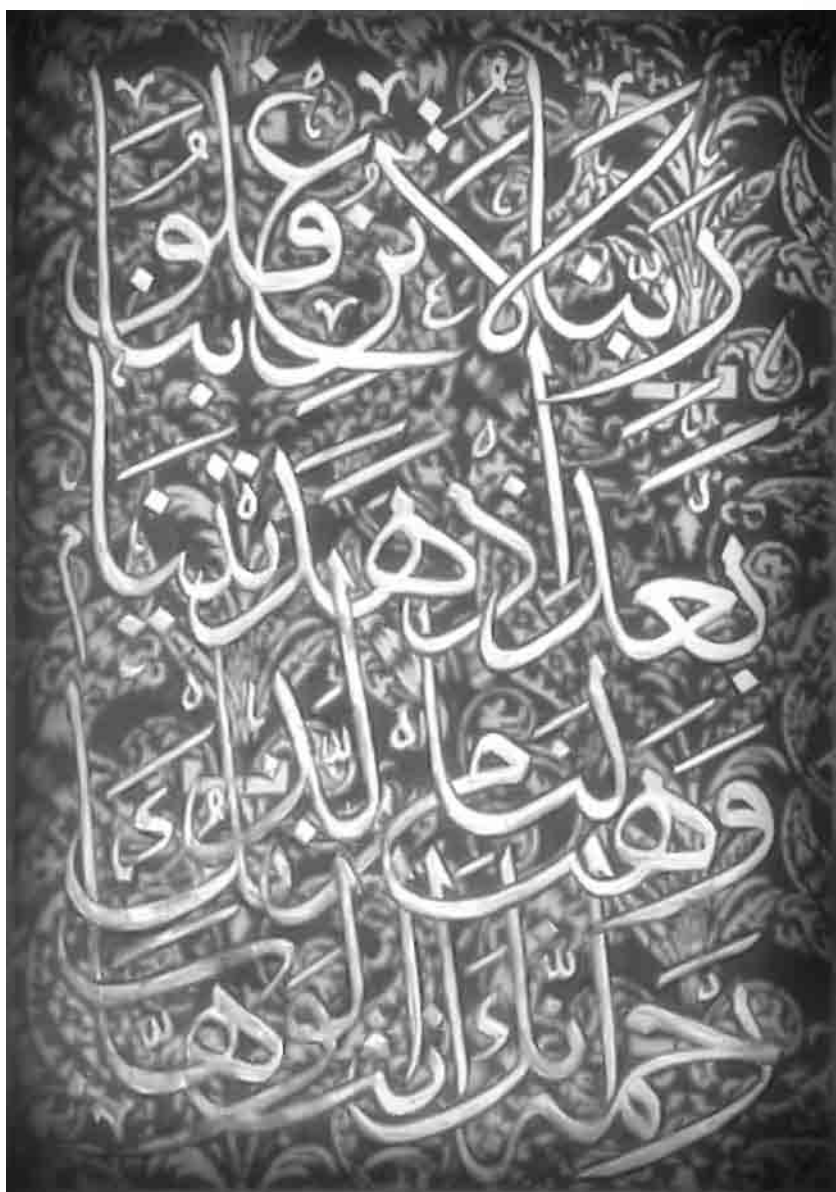 رَبَّنَا لَا تُزِغْ قُلُوبَنَا
بَعْدَ إِذْ هَدَيْتَنَا
وَهَبْ لَنَا مِنْ لَدُنْكَ
رَحْمَةً إِنَّكَ أَنْتَ الْوَهَّابُ